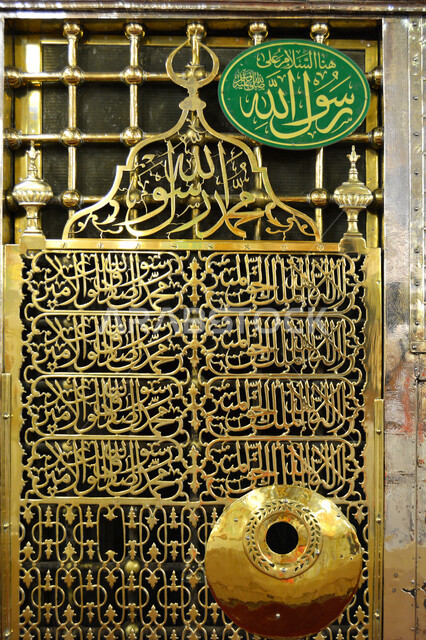 هنا السلام على
رسول الله
صلى الله عليه وسلم
محمد رسول الله
لا إله إلا الله الملك الحق المبين
محمد رسول الله صادق الوعد الأمين
لا إله إلا الله الملك الحق المبين
محمد رسول الله صادق الوعد الأمين
لا إله إلا الله الملك الحق المبين
محمد رسول الله صادق الوعد الأمين
لا إله إلا الله الملك الحق المبين
محمد رسول الله صادق الوعد الأمين
ARABSTOCK